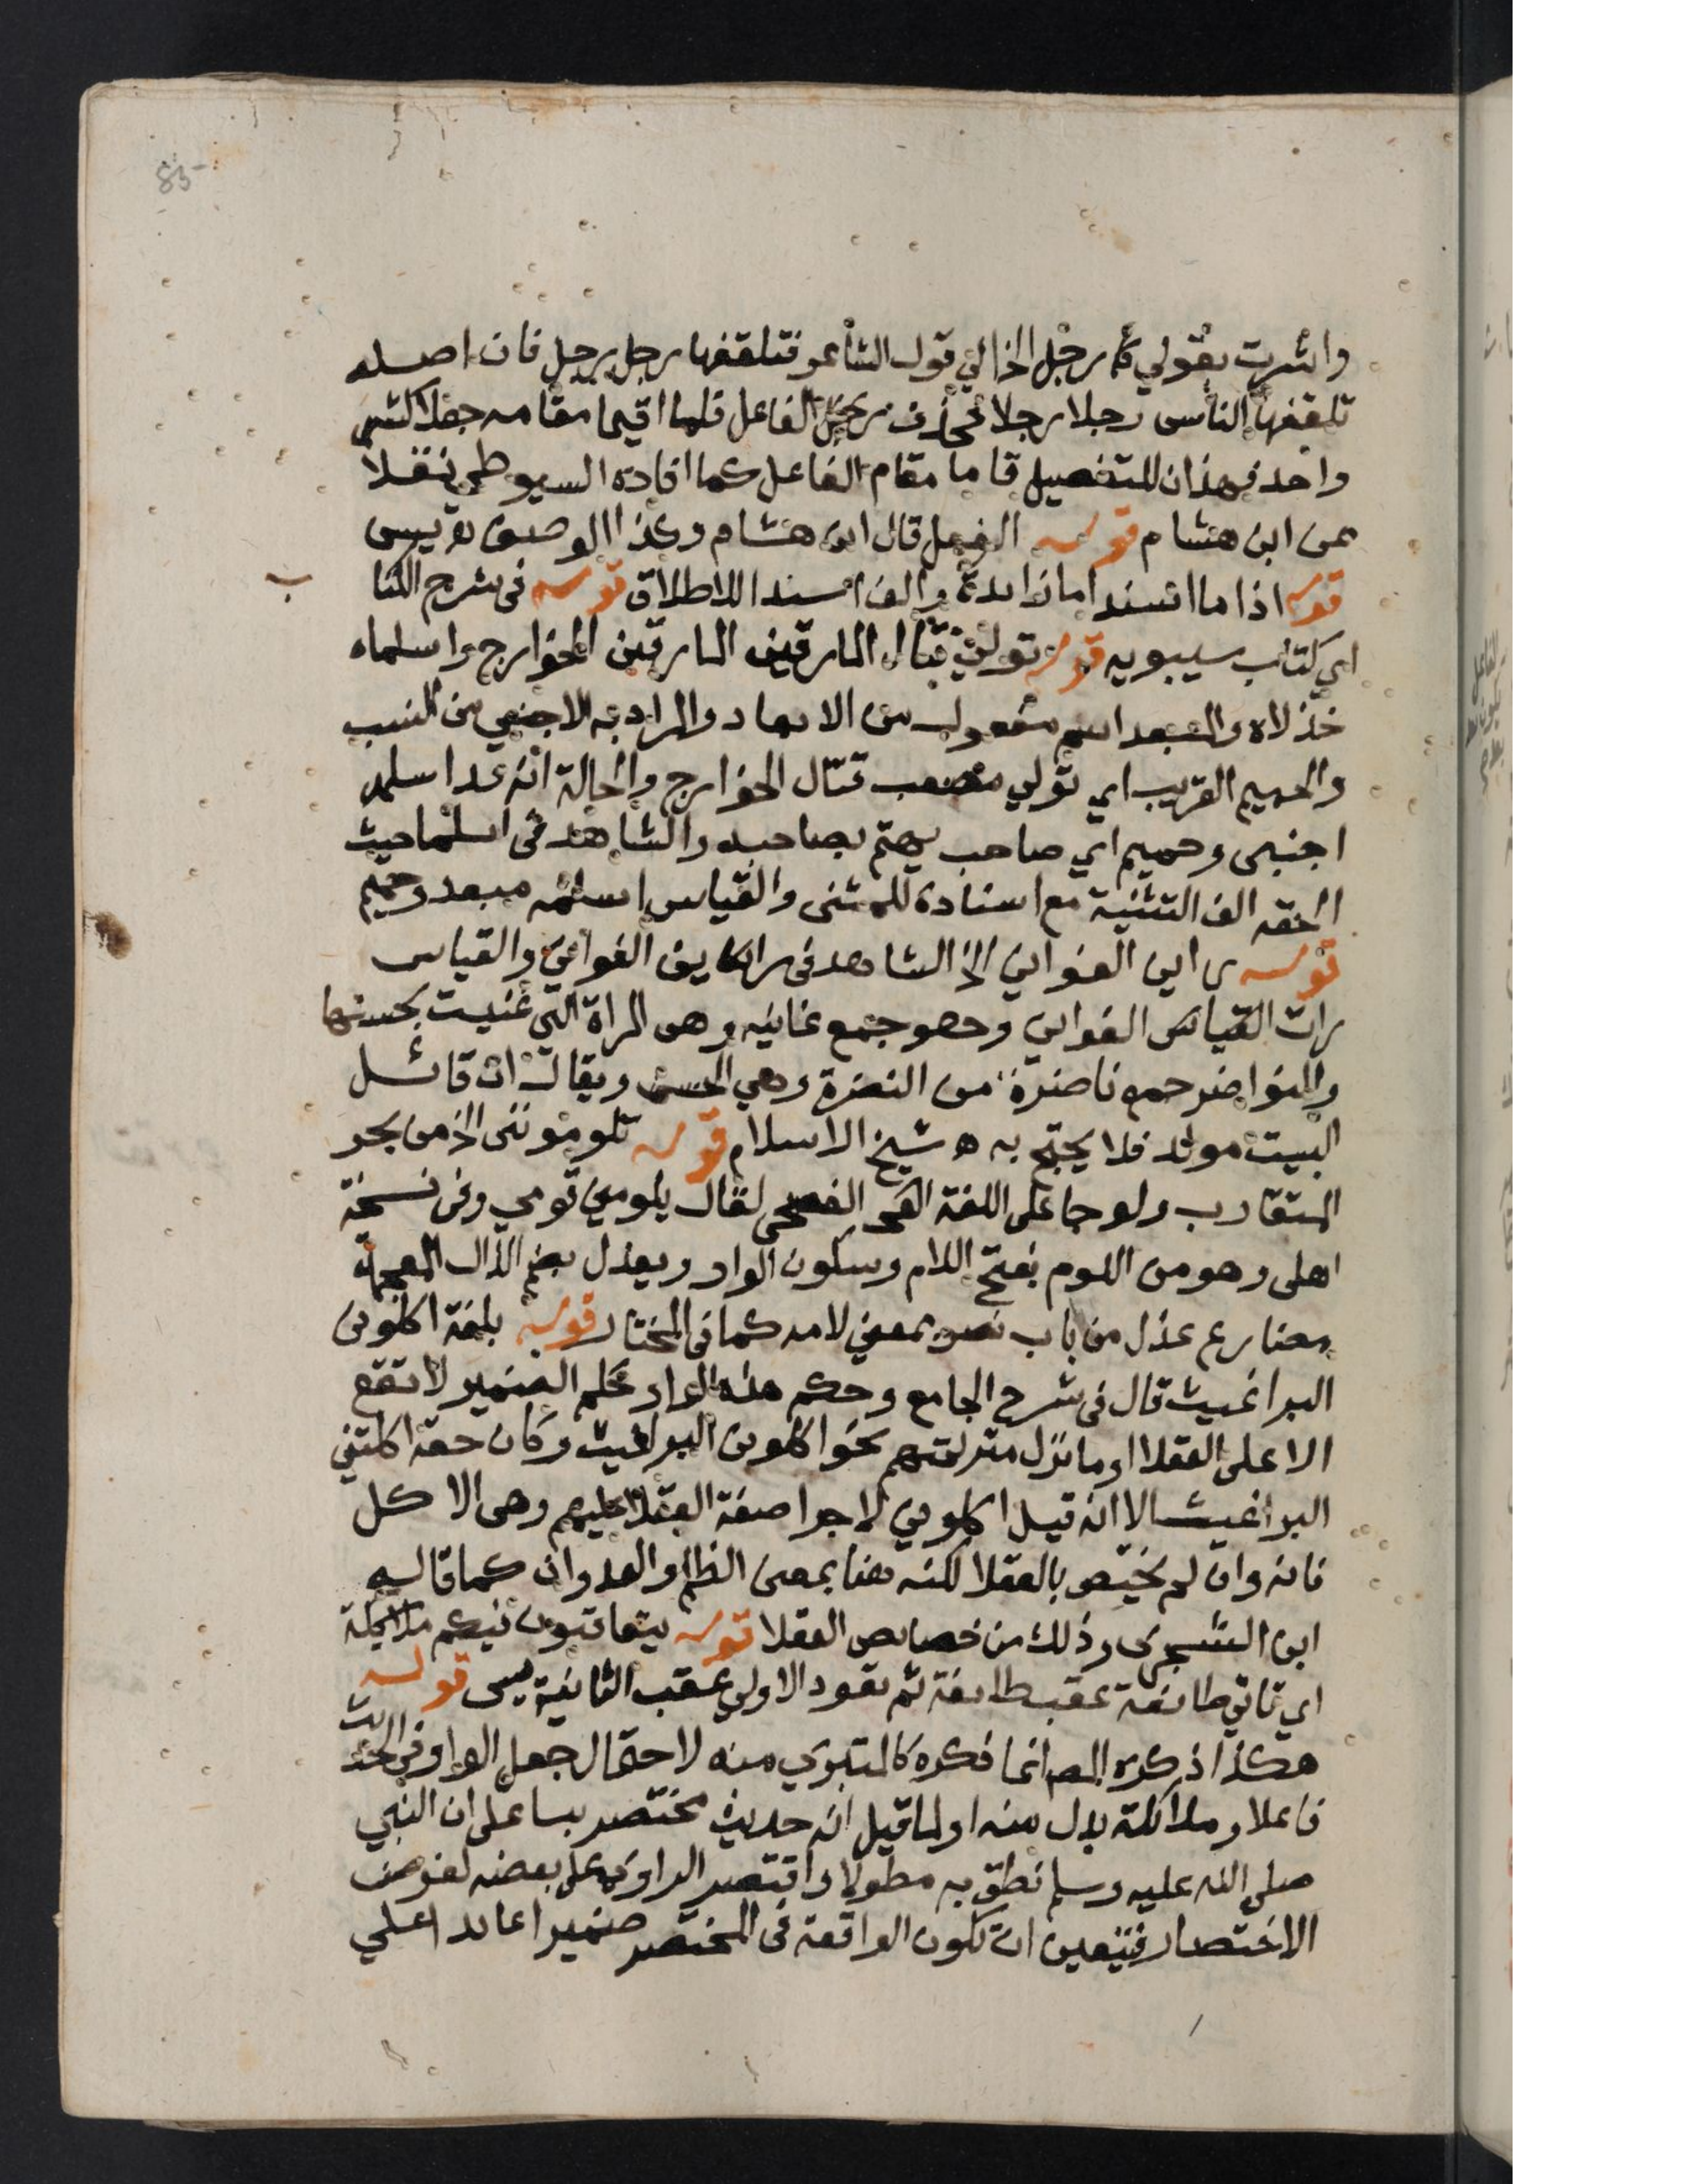 85
واشرت بقولي كما رجل الخ الي قول الشاعر فتلقفها رجل رجل فان اصله
تلقفها الناس رجلا رجلا فحذف الفاعل فلما اقيما مقامه جعلا كشي
واحد فهذان للتفصيل قاما مقام الفاعل كما افاده السيوطي نقلا
عن ابن هشام قوله الفعل قال ابن هشام وكذا الوصف ه يس
قوله اذا ما اسند ما زايدة والف اسندا للاطلاق قوله في شرح الكتا
ب
اي كتاب سيبويه قوله تولى قتال المارقين المارقين الخوارج واسلماه
خذلاه والمبعد اسم مفعول من الابعاد والمراد به الاجنبي من النسب
والحميم القريب اي تولي مصعب قتال الخوارج والحالة انه قد اسلمه
اجنبي وحميم اي صاحب يهتم بصاحبه والشاهد في اسلما حيث
الحقه الف التثنية مع اسناده للمثنى والقياس اسلمه مبعد وحميم
قوله راين الغواني الخ الشاهد في راين الغواني والقياس
رات القياس الغواني وهو جمع غانيه وهي المراة التي غنيت بحسنها
والنواضر جمع ناضرة من النضرة وهي الحسن ويقال ان قائل
البيت مولد فلا يحتج به ه شيخ الاسلام قوله تلومونني الخ من بحر
المتقارب ولو جا على اللغة الفصحى لقال يلومني قومي وفي نسخة
اهلى وهو من اللوم بفتح اللام وسكون الواو ويعذل بضم الذال المعجمة
مضارع عذل من باب نصر بمعني لامه كما في المختار قوله بلغة اكلوني
البراغيث قال في شرح الجامع وحكم هذه الواو حكم الضمير لا تقع
الا على العقلا او ما نزل منزلتهم نحو اكلوني البراغيث وكان حقه اكلتني
البراغيث الا انه قيل اكلوني لاجرا صفة العقلا عليهم وهي الاكل
فانه وان لم يختص بالعقلا لكنه هنا بمعنى الظلم والعدوان كما قاله
ابن الشجري وذلك من خصايص العقلا قوله يتعاقبون فيكم ملايكة
اي تاتي طائفة عقب طايفة ثم تعود الاولى عقب الثانية يس قوله
هكذا ذكره المص انما ذكره كالمتبري منه لاحتمال جعل الواو في الحديث
فاعلا وملائكة بدل منه او لما قيل انه حديث مختصر بنا على ان النبي
صلى الله عليه وسلم نطق به مطولا واقتصر الراوي على بعضه لغرض
الاختصار فيتعين ان تكون الواقعة في المختصر ضميرا عايدا علي